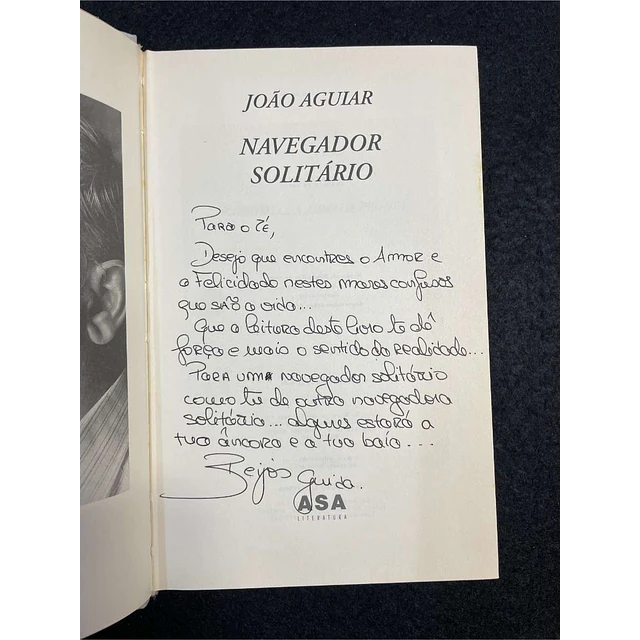 JOÃO AGUIAR
NAVEGADOR
SOLITÁRIO
Para o Zé,
Desejo que encontres o Amor e
a Felicidade nestes mares confusos
que são a vida...
Que a leitura deste livro te dê
força e mais o sentido da realidade...
Para um navegador solitário
como tu de outra navegadora
solitária... algures estará a
tua âncora e a tua baía...
Beijos Guida.
ASA
LITERATURA